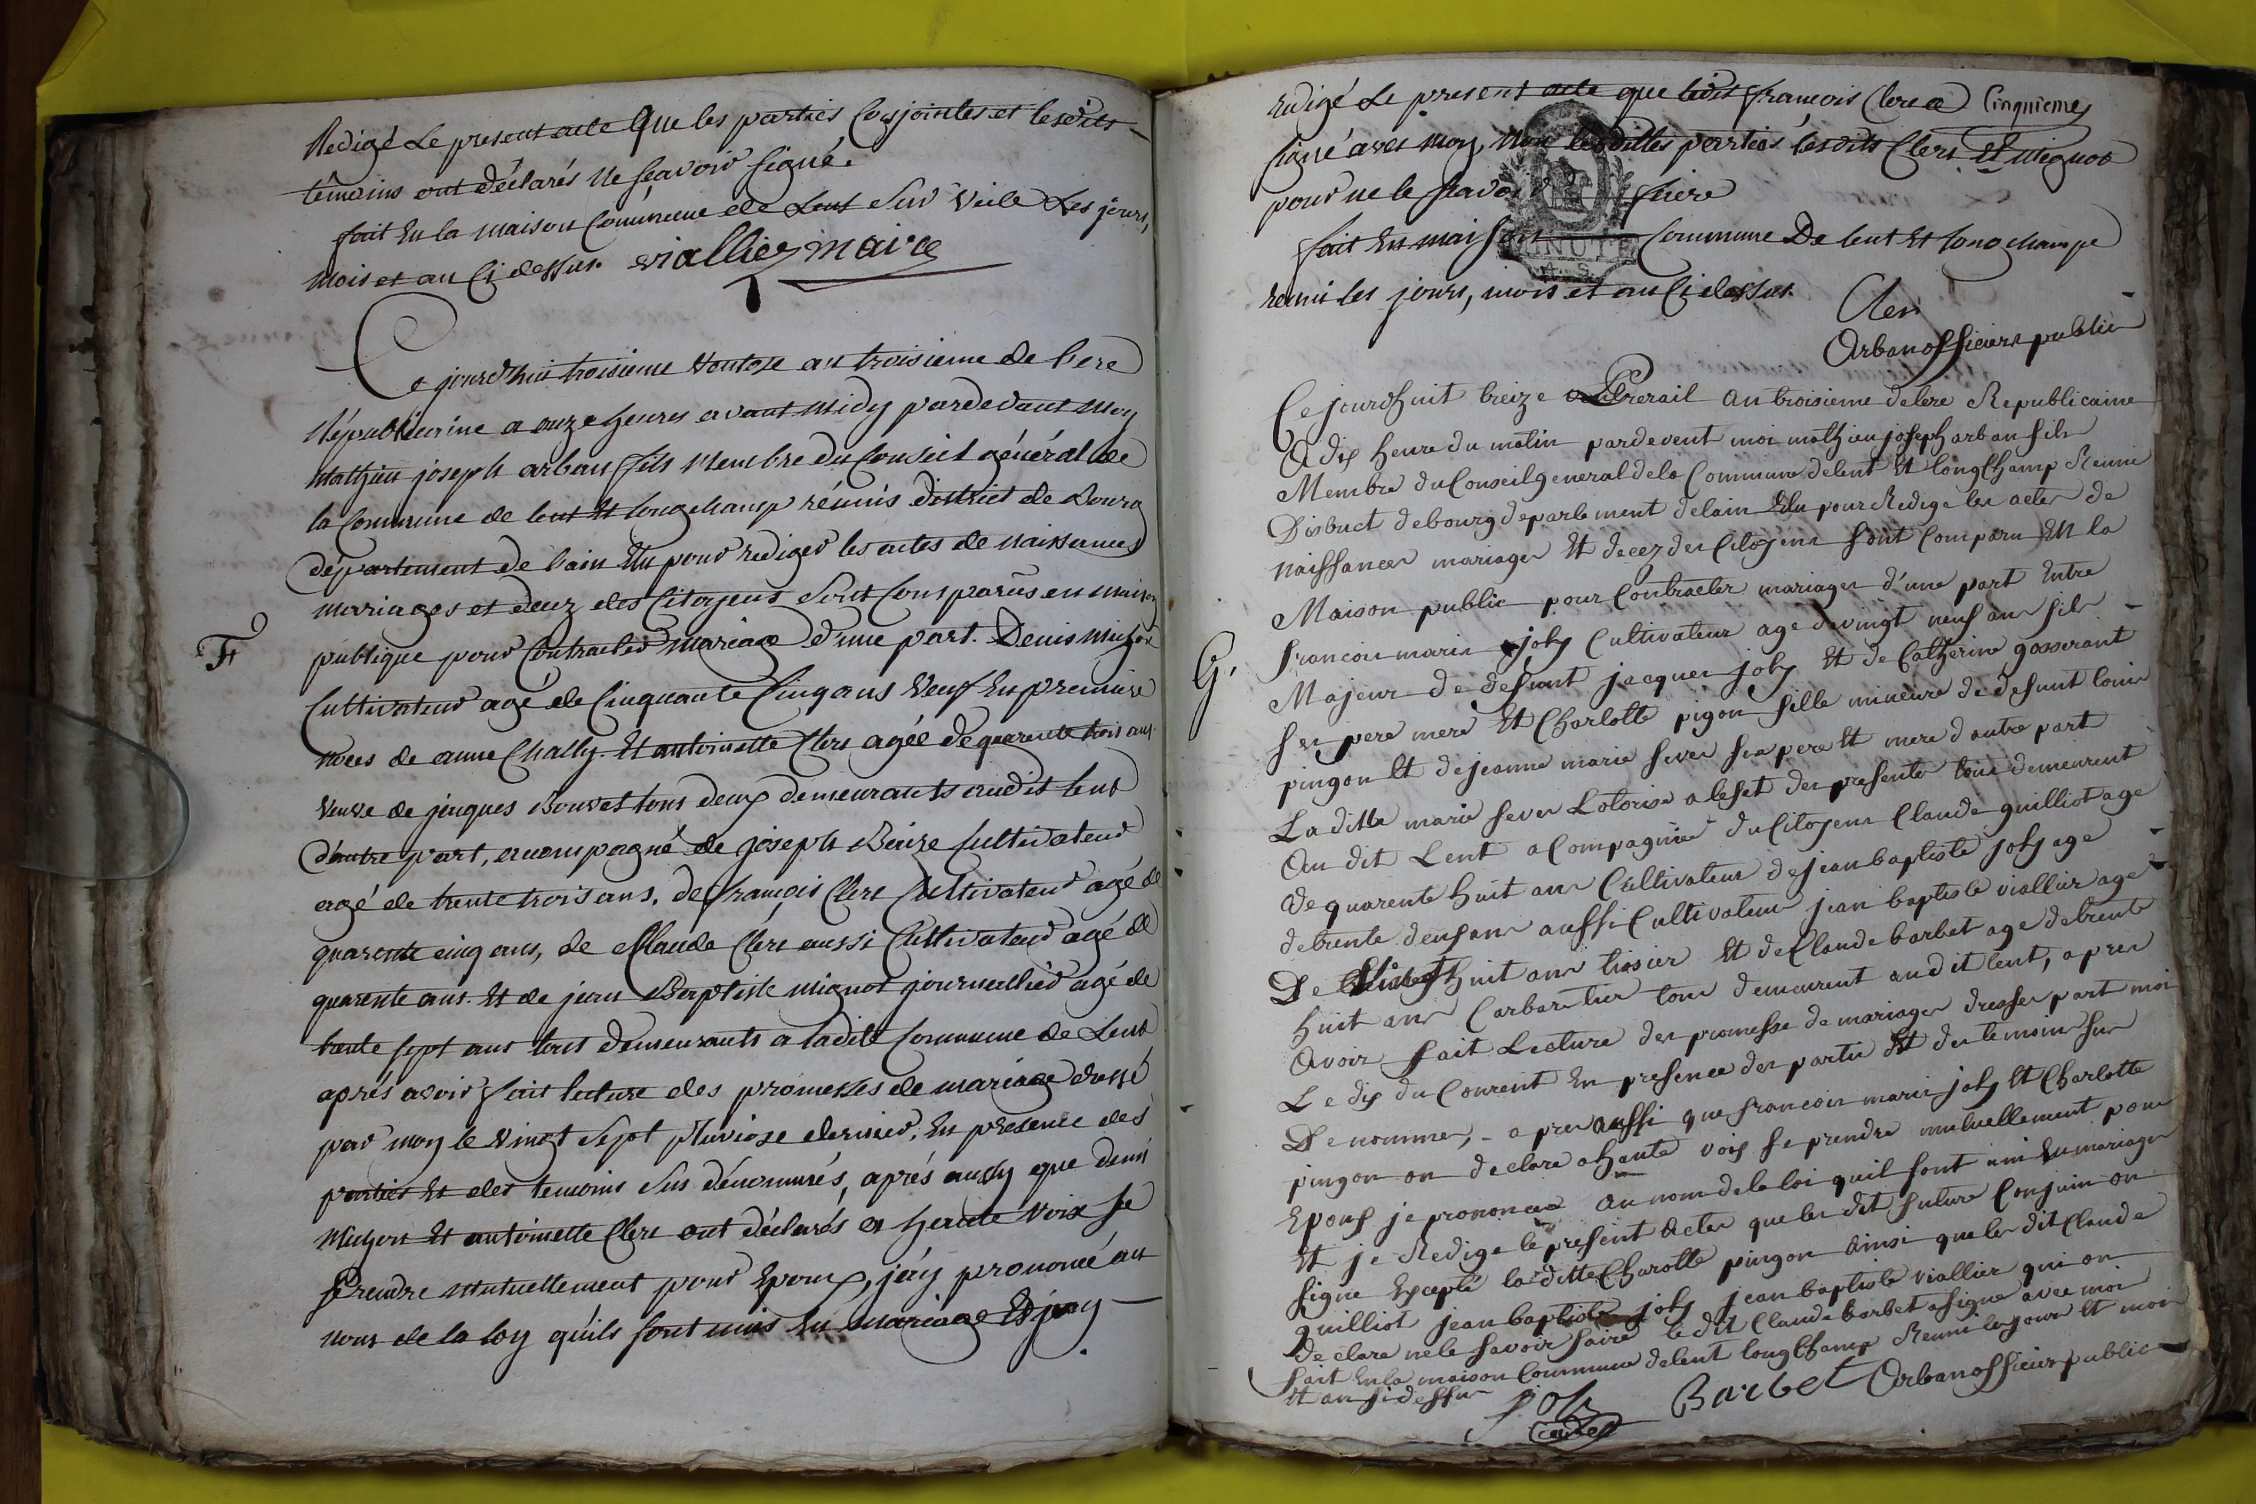 Redigé Le present acte Que les parties Conjointes et lesdits
têmoins ont déclarés ne sçavoir signé.
fait En la maison Commune de Lent Sur Veile Les jours,
mois et an Ci dessus. viallier maire
Ce jourd'hui troisieme Ventose an troisieme de l'ere
Républicaine a onze heures avant midy pardevant moy
Mathieu joseph arban fils Membre du Conseil général de
la Commune de lent Et longchamp réunis district de Bourg
département de l'ain Elu pour rediger les actes de naissances
mariages et decez des Citoyens Sont Comparûs en maison
publique pour Contracter Mariage d'une part. Denis Michon
F
Cultivateur agé de Cinquante Cinq ans Veuf En premiere
noces de anne Chally. Et antoinette Clerc agée de quarente trois ans
Veuve de jacques Bouvet tous deux demeurants audit lent
d'autre part, acompagné de joseph Cultivateur
agé de trente trois ans, de françois Clerc Cultivateur agé de
quarente cinq ans, de Claude Clerc aussi Cultivateur agé de
quarente ans. Et de jean Baptiste mignot journallier agé de
trente sept ans tous demeurants a ladite Commune de Lent
aprés avoir fait lecture des promesses de mariage dressé
par moy le vingt Sept Pluviose dernier, En présence des
parties Et des temoins Sus dénommés, aprés aussy que denis
Michon Et antoinette Clerc ont déclarés a haute voix se
prendre mutuellement pour Epoux, j'ay prononcé au
nom de la loy qu'ils sont unis En mariage Et j'ay
redigé Le present acte que ledit françois Clerc a Cinquieme
signé avec moy, Non lesdittes parties lesdits Clerc Et Mignot
pour ne le sçavoir faire
MINUTE
fait En maison Commune De lent Et longchamp
reuni les jours, mois et an Ci dessus.
Clerc
Arban officiere public
Ce jourdhuit treize prererail an troisieme delere Republicaine
A dix heure du matin pardevent moi mathieu joseph arban fils
Membre du Conseil general dela Commune delent Et longChamp Reuni
District debourg departement delain Elu pour Redige les actes de
naissances mariages Et decez des Citoyens Sont Comparu En la
Maison public pour Contracter mariages d'une part Entre
G.
francois marie joly Cultivateur age de vingt neuf ans fils
Majeur de defunt jacques joly Et de Catherine gosserant
ses pere mere Et Charlotte pigon fille mineure de defunt louis
pingon Et de jeanne marie sever sea pere Et mere d autre part
La ditte marie sever Lotorise a leset des presente tous demeurent
Au dit Lent a Compagnie du Citoyens Claude guilliot age
de quarente huit ans Cultivateur de jean baptiste joly age
de trente deux ans aussi Cultivateur jean baptiste viallier age
De huit ans tissier Et de Claude barbet age de trente
huit ans Carbartier tous demeurent audit lent, apres
avoir fait Lecture des promesse de mariages dresser part moi
Le dix du Courent En presence des partie Et des temoins sus
Denommer, a pres aussi que francois marie joly Et Charlotte
pingon on declare a haute vois se prendre mutuellement pour
Epous je prononcé au nom de la loi quil sont uni En mariages
Et je Redige le present actes que les dit future Conjoin on
signe Excepté la ditte Charotte pingon ainsi que les dit Claude
guilliot jean baptiste joly jean baptiste viallier qui on
declare ne le savoir faire le dit Claude barbet a signe avec moi
fait En la maison Commune delent longChamp Reuni les jour Et mois
Et an si dessus
joly
cadet
Barbet Arban officier public